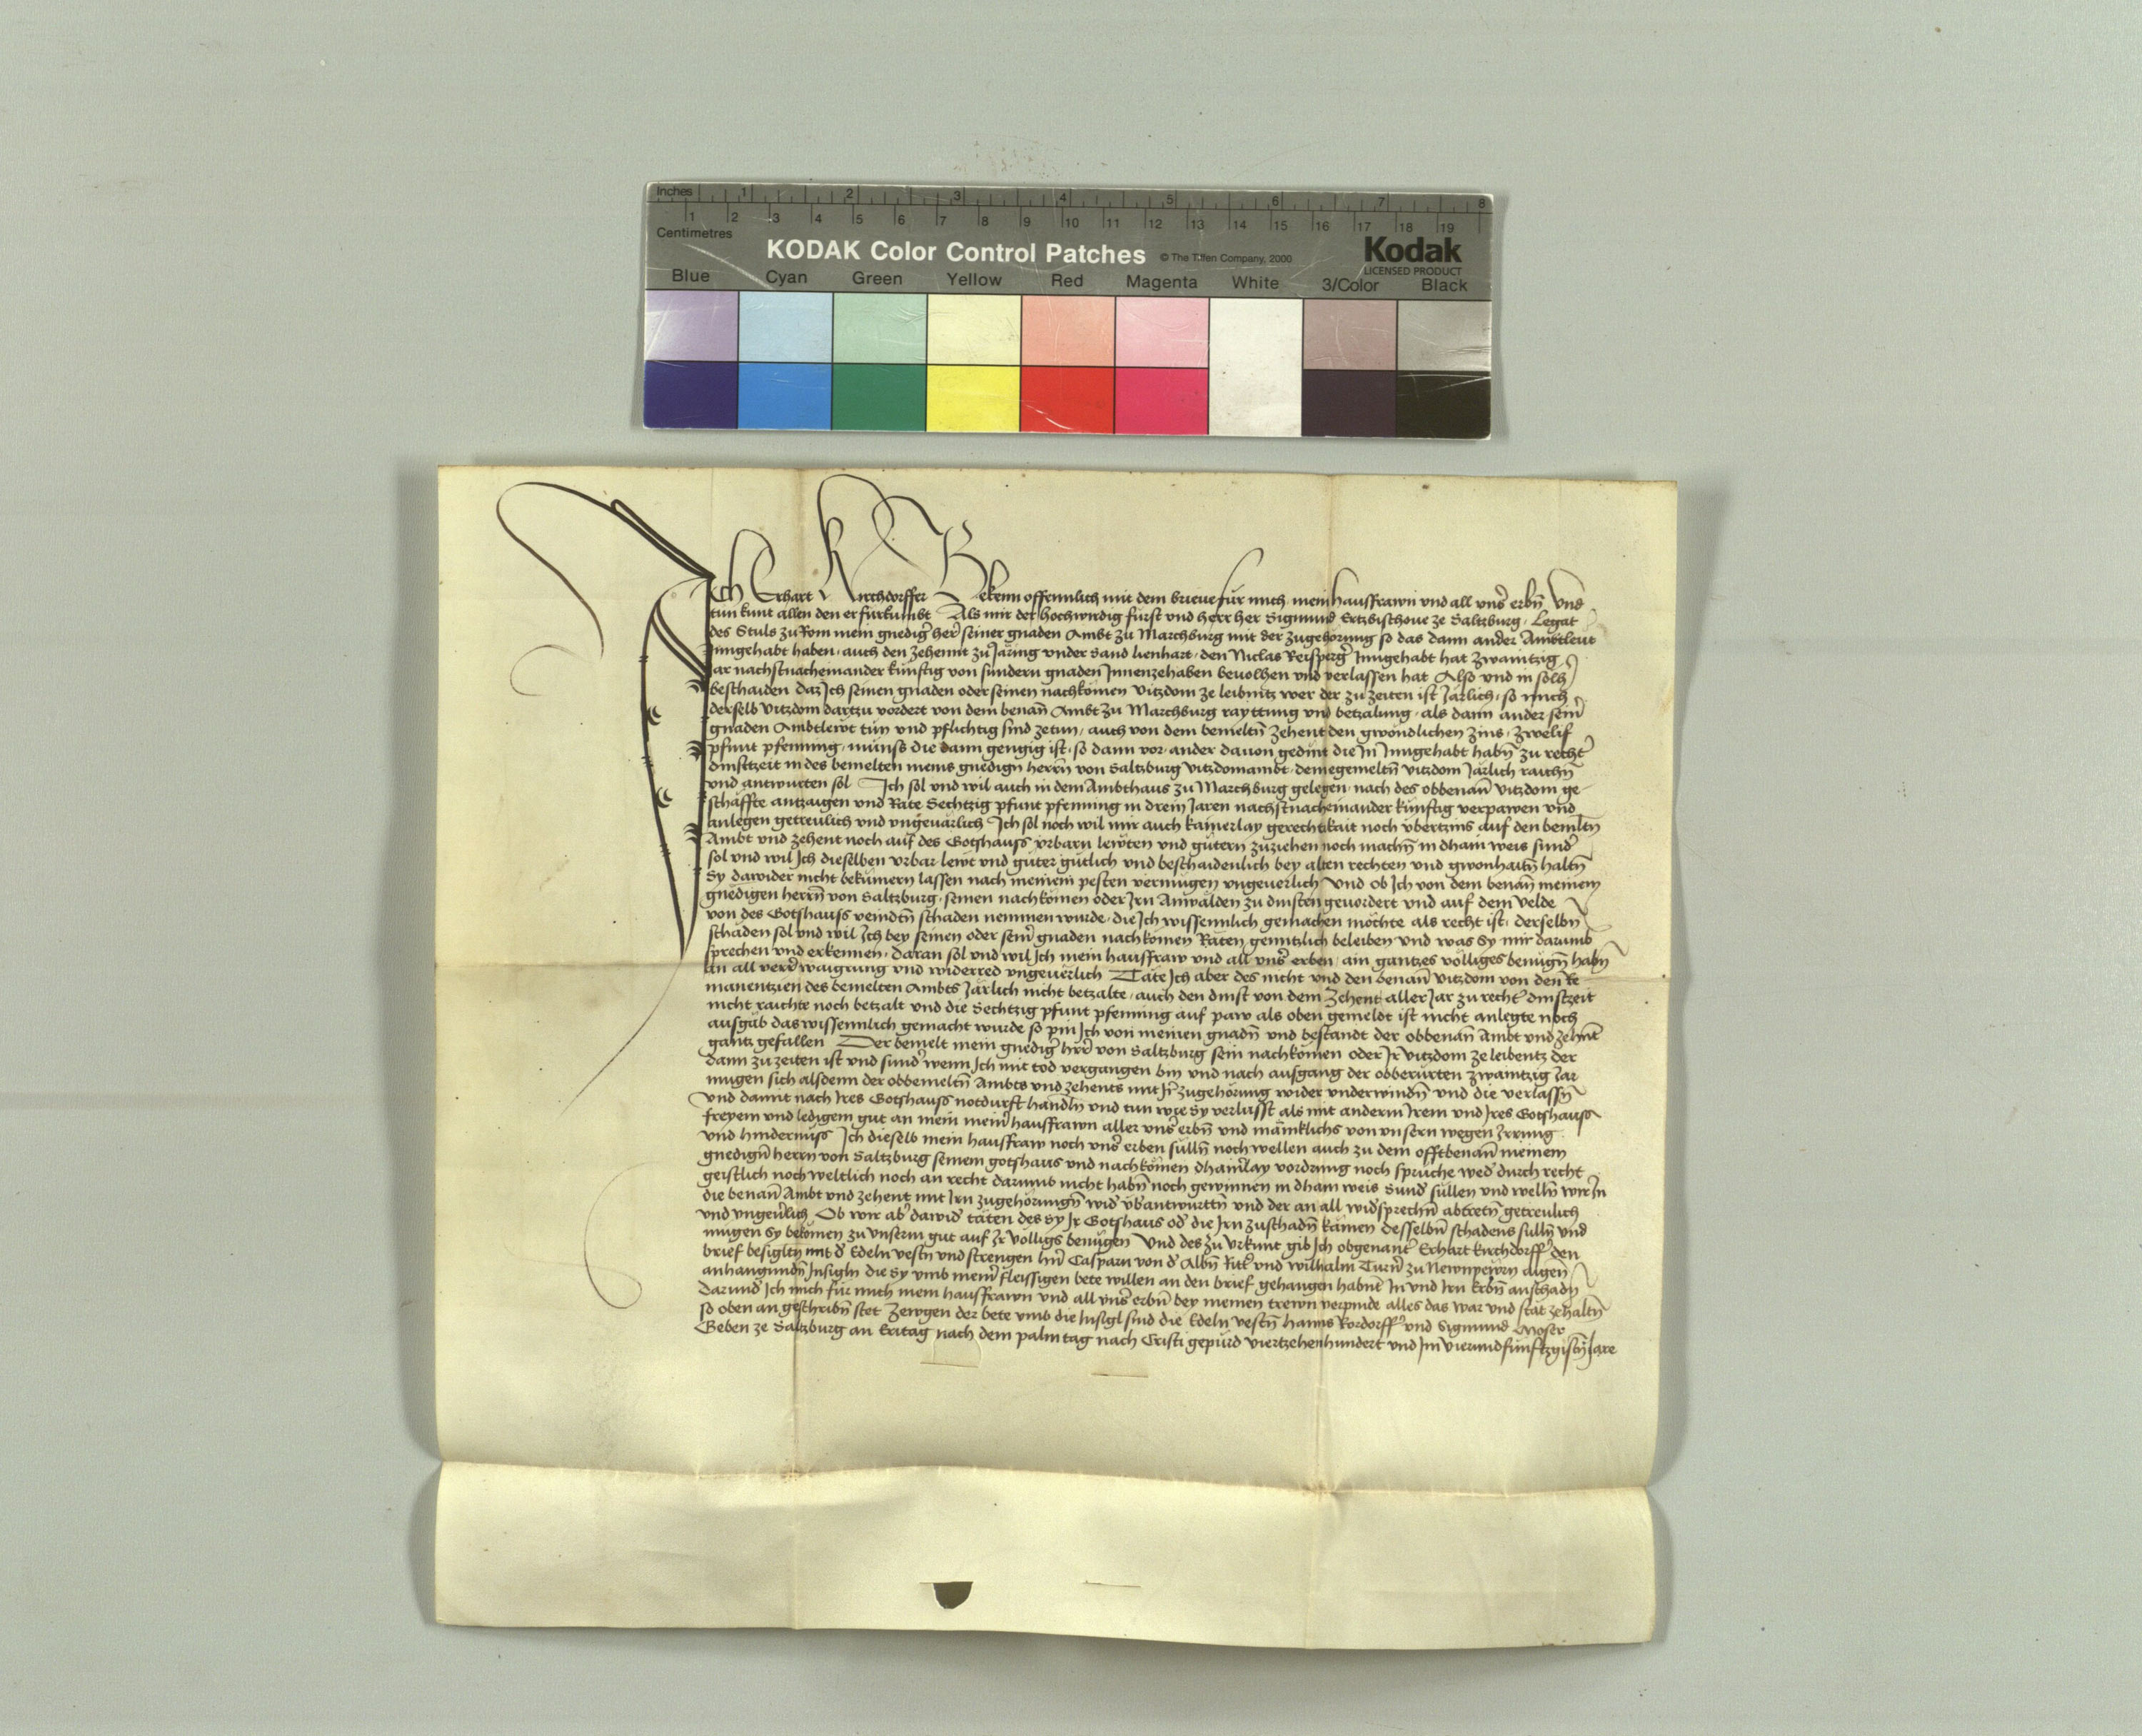 Inches 1 2 3 4 5 6 7 8
1 2 3 4 5 6 7 8 9 10 11 12 13 14 15 16 17 18 19
Centimetres
KODAK Color Control Patches © The Tiffen Company, 2000 Kodak
LICENSED PRODUCT
Blue Cyan Green Yellow Red Magenta White 3/Color Black
Ich Erhart Kirchdorffer Bekenn offennlich mit dem brieue fur mich mein hausfrawn vnd all vnser erbn̄ Vnd
tun kunt allen den er furkumbt Als mir der hochwirdig furst vnd herr her Sigmund Ertzbischoue ze Saltzburg Legat
des Stuls zu Rom mein gnediger her seiner gnaden Ambt zu Marchburg mit der zugehorung so das dann ander Ambtleut
Inngehabt haben, auch den zehennt zu Jaring vnder Sand lienhart, den Niclas Reisperger Inngehabt hat zwaintzig
Jar nachstnacheinander kunftig von sundern gnaden Innenzehaben beuolhen vnd verlassen hat Also vnd in solh
beschaiden daz Ich seinen gnaden oder seinen nachkomen vitzdom ze leibnitz wer der zu zeiten ist Järlich, so mich
derselb vitzdom dartzu vordert von dem benan̄ Ambt zu Marchburg rayttung vnd betzalung, als dann ander seiner
gnaden Ambtlewt tun vnd pflichtig sind zetun, auch von dem bemelten zehent den gwondlichen zins, zwelif
pfunt pfenning, munss die dann gengig ist, so dann vor, ander dauon gedint die In Inngehabt habn̄ zu rechter
dinstzeit in des bemelten meins gnedign herrn von Saltzburg vitzdomambt, demegemeltn̄ vitzdom Järlich raichn̄
vnd antwurten sol Ich sol vnd wil auch in dem Ambthaus zu Marchburg gelegen, nach des obbenan̄ vitzdom ge-
schäffte antzaigen vnd Rate Sechtzig pfunt pfenning in drein Jaren nachstnacheinander kunftig verpawen vnd
anlegen getreulich vnd vngeuärlich Ich sol noch wil mir auch kainerlay gerechtikait noch vbertzins auf den bemeltn̄
Ambt vnd zehent noch auf des Gotshauss vrbarn lewten vnd gutern zuziehen noch machn̄ in dhain weis sunder
sol vnd wil Ich dieselben vrbar lewt vnd guter gutlich vnd beschaidenlich bey alten rechten vnd gwonhaitn̄ haltn̄
Sy dawider nicht bekumern lassen nach meinem pesten vermugen vngeuerlich Vnd ob Ich von dem benan̄ meinem
gnedigen herrn̄ von Saltzburg, seinen nachkomen oder Irn Anwälden zu dinsten geuordert vnd auf dem velde
von des Gotshauss veindtn̄ schaden nemmen wurde, die Ich wissennlich gemachen möchte als recht ist, derselbn
schäden sol vnd wil Ich bey seinen oder seiner gnaden nachkomen Räten genntzlich beleiben vnd was Sy mir darumb
sprechen vnd erkennen, daran sol vnd wil Ich mein hausfraw vnd all vnser erben, ain gantzes völliges benugn̄ habn̄
an all verrer waigrung vnd widerred vngeuerlich Täte Ich aber des nicht vnd den benan̄ vitzdom von den Re-
manentzien des bemelten Ambts Järlich nicht betzalte, auch den dinst von dem zehent aller Jar zu rechter dinstzeit
nicht raichte noch betzalt vnd die Sechtzig pfunt pfenning auf paw als oben gemeldt ist nicht anlegte noch
ausgäb das wissennlich gemacht wurde so pin Ich von meinen gnadn̄ vnd bestandt der obbenan̄ Ambt vnd zehent
gantz gefallen Der bemelt mein gnediger herr von Saltzburg sein nachkomen oder Ir vitzdom ze leibentz der
dann zu zeiten ist vnd sunder wenn Ich mit tod vergangen bin vnd nach ausgang der obberurten zwaintzig Jar
mugen sich alsdenn der obbemeltn̄ Ambts vnd zehents mit Ir zugehörung wider vnderwindn̄ vnd die verlassn̄
vnd damit nach Ires Gotshauss notdurft handln̄ vnd tun wie Sy verlusst als mit anderm Irem vnd Ires Gotshauss
freyem vnd ledigem gut an mein meiner hausfrawn aller vnser erbn̄ vnd mänicklichs von vnsern wegen Irrung
vnd hindernuss Ich dieselb mein hausfraw noch vnser erben sulln̄ noch wellen auch zu dem offtbenan̄ meinem
gnedign̄ herrn von Saltzburg seinem gotshaus vnd nachkomen dhainerlay vordrung noch spruche weder durch recht
geistlich noch weltlich noch an recht darumb nicht habn̄ noch gewinnen in dhain weis Sunder sullen vnd welln̄ wir In
die benan̄ Ambt vnd zehent mit Irn zugehörungn̄ wider vberantwurttn̄ vnd der an all widersprechn̄ abtretn̄ getreulich
vnd vngeuerlich Ob wir aber dawider täten des Sy Ir Gotshaus oder die Irn zu schadn̄ kämen desselbn̄ schadens sulln̄ vnd
mugen Sy bekomen zu vnserm gut auf Ir völligs benugen Vnd des zu Vrkunt gib Ich obgenanter Erhart Kirchdorffer den
brief besigltn mit der Edeln vestn̄ vnd strengen hern Casparn von der Albn̄ Ritter vnd Wilhalm Turner zu Newnpewrn aigen
anhangundn̄ Insigln die Sy vmb meiner fleissigen bete willen an den brief gehangen habnt In vnd Irn Erbn̄ an schadn
darunder Ich mich fur mich mein hausfrawn vnd all vnser erbn̄ bey meinen trewn verpinde alles das war vnd stät zehaltn̄
so oben an geschribn̄ stet Zewgen der bete vmb die Insigl sind die Edeln vestn̄ hanns Rordorffer vnd Sigmund Moser
Geben ze Saltzburg an Eritag nach dem palmtag nach Cristi gepurd viertzehenhundert vnd Im vierundfunftzgistn̄ Jare